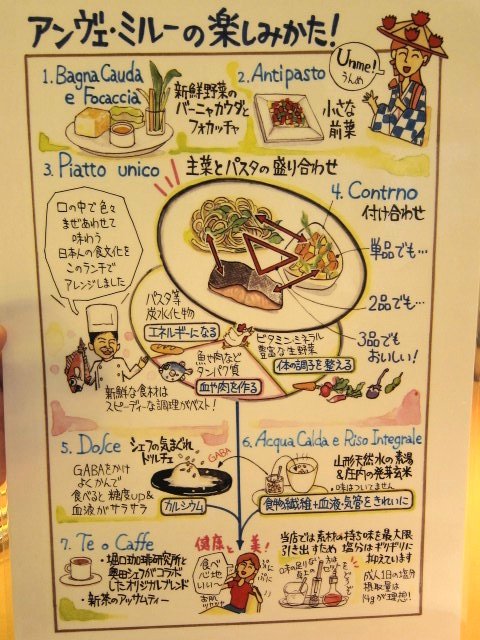 アンヴェ・ミルーの楽しみかた!
Unme!
うんめ
1. Bagna Cauda
e Focaccia
新鮮野菜の
バーニャカウダと
フォカッチャ
2. Antipasto
小さな
前菜
3. Piatto unico
主菜とパスタの盛り合わせ
口の中で色々
まぜあわせて
味わう
日本人の食文化を
このランチで
アレンジしました
4. Contrno
付け合わせ
単品でも…
2品でも…
3品でも
おいしい!
パスタ等
炭水化物
エネルギーになる
ビタミン・ミネラル
豊富な生野菜
体の調子を整える
魚や肉など
タンパク質
血や肉を作る
新鮮な食材は
スピーディーな調理がベスト!
5. Dolce
シェフの気まぐれ
ドルチェ
GABAをかけ
よくかんで
食べると糖度up&
血液がサラサラ
GABA
カルシウム
6. Acqua Calda e Riso Integrale
山形天然水の素湯
&庄内の発芽玄米
・味はついてません
食物繊維+血液・気管をきれいに
7. Te o Caffe
・堀口珈琲研究所と
奥田シェフがコラボ
したオリジナルブレンド
・新茶のアッサムティー
健康と美!
食べ
心地
いい〜
お肌
ツヤツヤ
ぷに
ぷに
当店では素材の持ち味を最大限
引き出すため塩分はギリギリに
抑えています
成人1日の塩分
摂取量は
14gが理想!